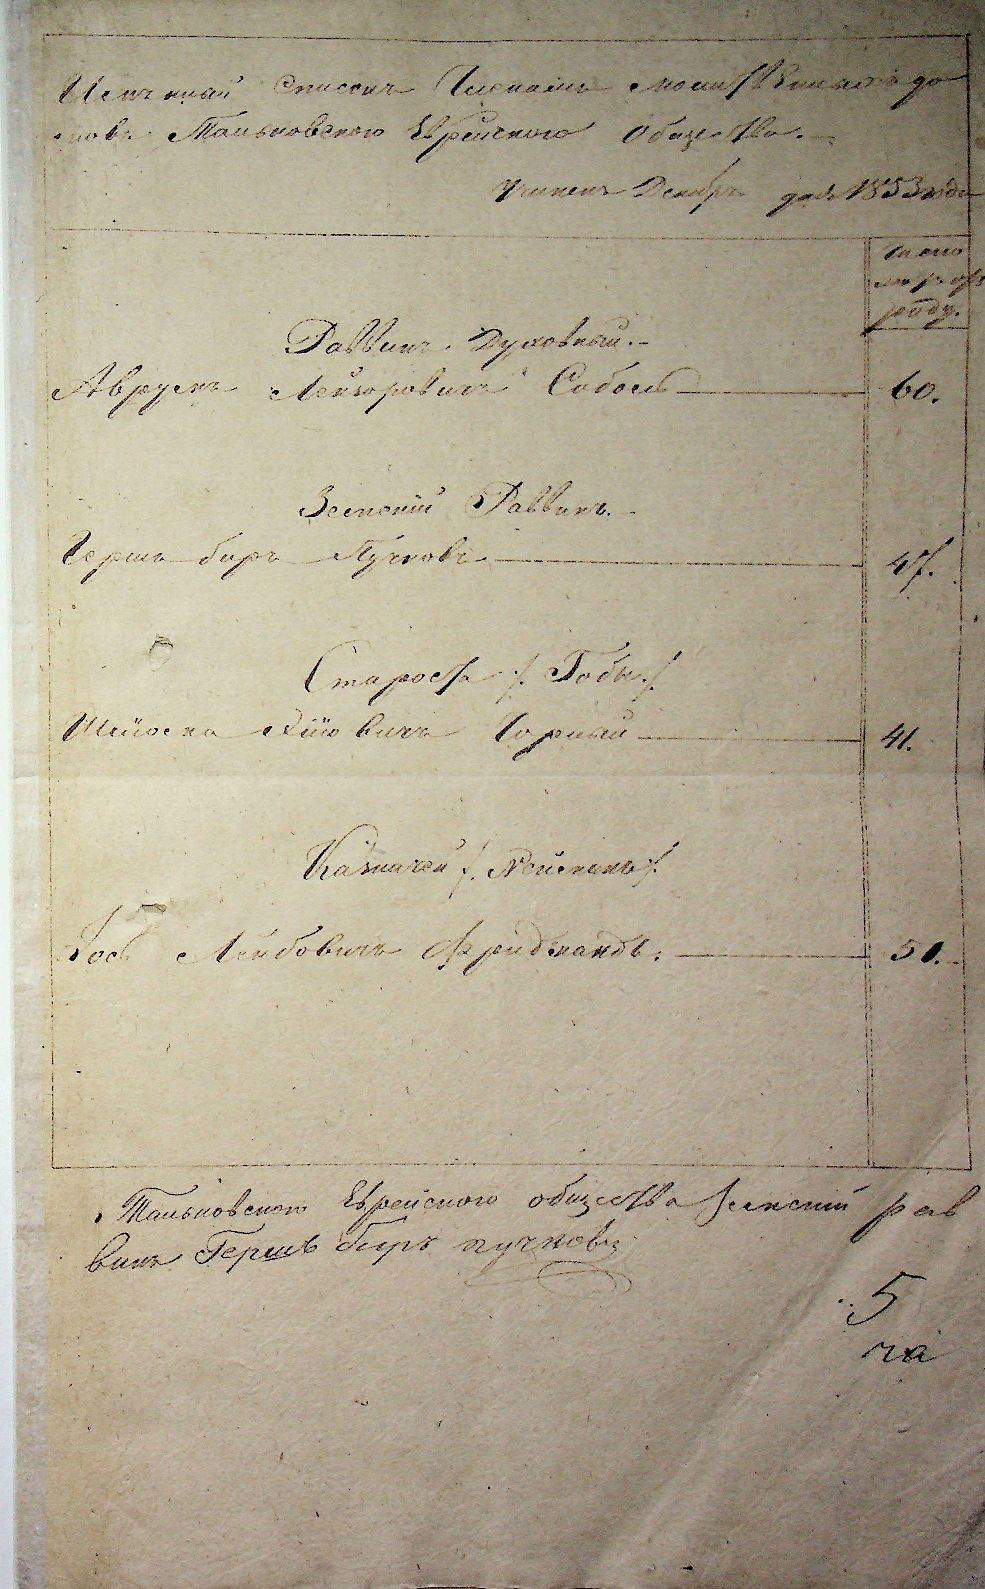 Именный Списокъ Членамъ молитвенныхъ до
мовъ Тальновского Еврейского Общества.
Учинен Декабря дня 1853 года
Число
лѣтъ отъ
роду.
Раввинъ Духовный.
Аврумъ Лейзоровичъ Соболь 60.
Земский Раввинъ.
Гершъ беръ Пучковъ 47.
Староста /: Габы :/
Шейоска Янкіовичъ Горный 41.
Казначей /: Нейеманъ :/
Іось Лейбовичъ Фридманъ. 51.
Тальновского Еврейского общества Земский рав
винъ Гершъ беръ пучковъ
5
на